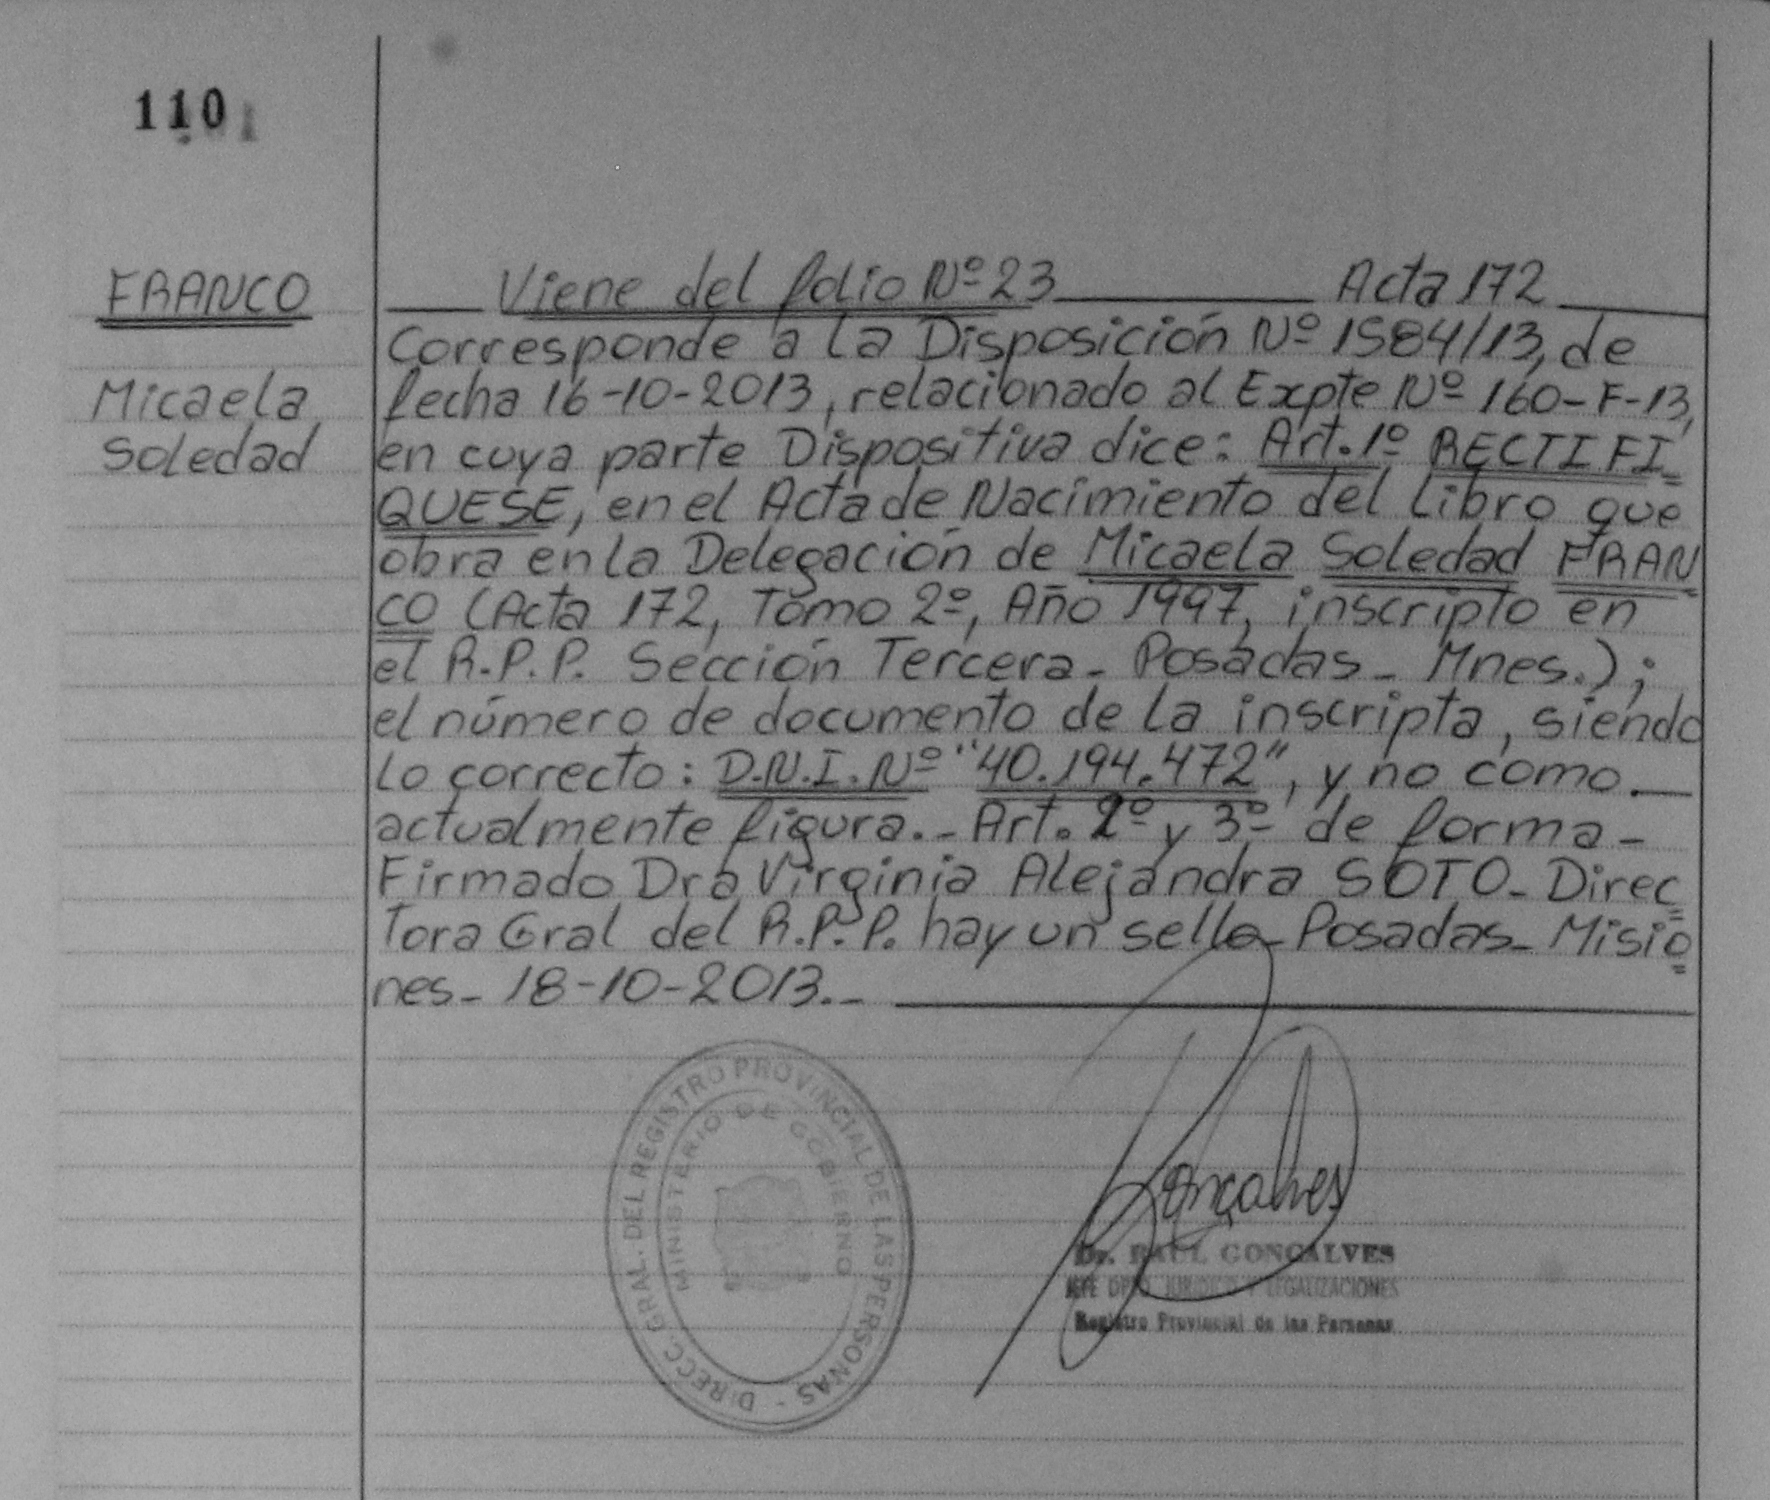 110
FRANCO
Micaela
Soledad
Viene del folio Nº 23 Acta 172
Corresponde a la Disposición Nº 1584/13, de
fecha 16-10-2013, relacionado al Expte Nº 160-F-13,
en cuya parte Dispositiva dice: Art. 1º RECTIFI
QUESE, en el Acta de Nacimiento del Libro que
obra en la Delegación de Micaela Soledad FRAN
CO (Acta 172, Tomo 2º, Año 1997, inscripto en
el R.P.P. Sección Tercera - Posadas - Mnes.);
el número de documento de la inscripta, siendo
lo correcto: D.N.I. Nº "40.194.472", y no como
actualmente figura.- Art. 2º y 3º de forma -
Firmado Dra Virginia Alejandra SOTO - Direc
tora Gral del R.P.P. hay un sello - Posadas - Misio
nes - 18-10-2013.-
DIRECC. GRAL. DEL REGISTRO PROVINCIAL DE LAS PERSONAS -
MINISTERIO DE GOBIERNO
Gonçalves
Dr. RAUL GONÇALVES
JEFE DPTO JURIDICO Y LEGALIZACIONES
Registro Provincial de las Personas